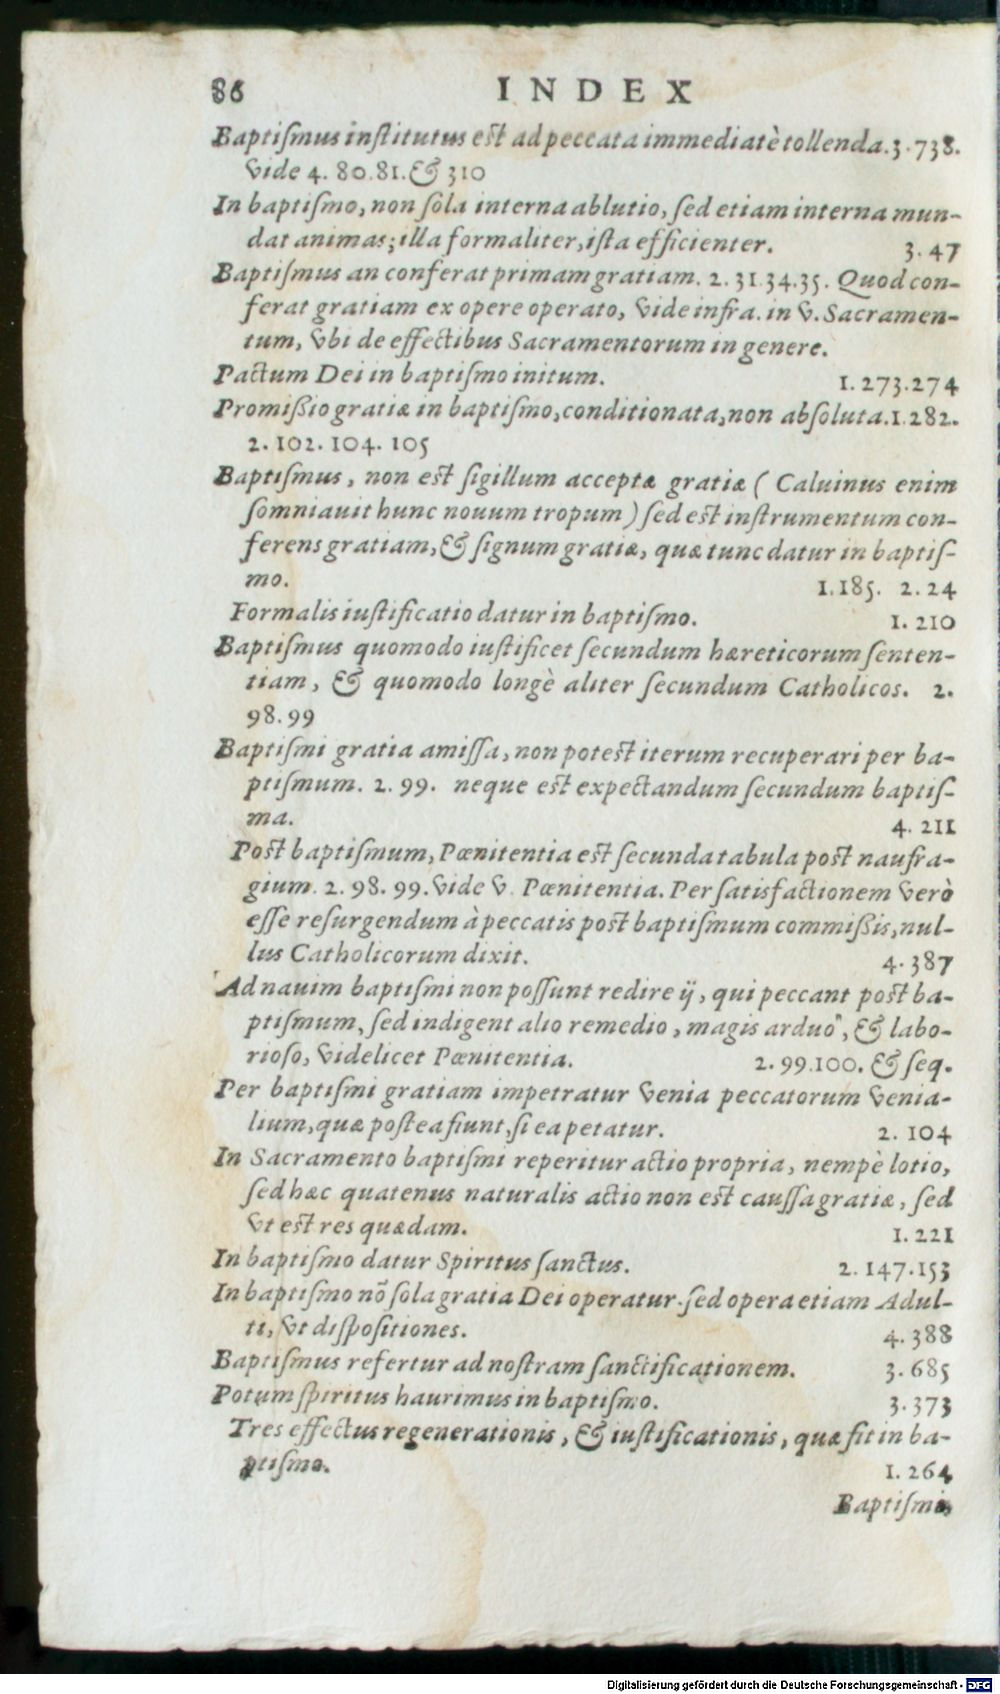 86 INDEX
Baptiſmus inſtitutus eſt ad peccata immediatè tollenda. 3. 738.
vide 4. 80. 81. & 310
In baptiſmo, non ſola interna ablutio, ſed etiam interna mun-
dat animas; illa formaliter, iſta efficienter. 3. 47
Baptiſmus an conferat primam gratiam. 2. 31. 34. 35. Quod con-
ferat gratiam ex opere operato, vide infra. in v. Sacramen-
tum, vbi de effectibus Sacramentorum in genere.
Pactum Dei in baptiſmo initum. 1. 273. 274
Promiſſio gratiæ in baptiſmo, conditionata, non abſoluta. 1. 282.
2. 102. 104. 105
Baptiſmus, non eſt ſigillum acceptæ gratiæ ( Caluinus enim
ſomniauit hunc nouum tropum ) ſed eſt inſtrumentum con-
ferens gratiam, & ſignum gratiæ, quæ tunc datur in baptiſ-
mo. 1. 185. 2. 24
Formalis iuſtificatio datur in baptiſmo. 1. 210
Baptiſmus quomodo iuſtificet ſecundum hæreticorum ſenten-
tiam, & quomodo longè aliter ſecundum Catholicos. 2.
98. 99
Baptiſmi gratia amiſſa, non poteſt iterum recuperari per ba-
ptiſmum. 2. 99. neque eſt expectandum ſecundum baptiſ-
ma. 4. 211
Poſt baptiſmum, Pœnitentia eſt ſecunda tabula poſt naufra-
gium. 2. 98. 99. vide v. Pœnitentia. Per ſatisfactionem verò
eſſe reſurgendum à peccatis poſt baptiſmum commiſſis, nul-
lus Catholicorum dixit. 4. 387
Ad nauim baptiſmi non poſſunt redire ij, qui peccant poſt ba-
ptiſmum, ſed indigent alio remedio, magis arduo, & labo-
rioſo, videlicet Pœnitentia. 2. 99. 100. & ſeq.
Per baptiſmi gratiam impetratur venia peccatorum venia-
lium, quæ poſtea fiunt, ſi ea petatur. 2. 104
In Sacramento baptiſmi reperitur actio propria, nempè lotio,
ſed hæc quatenus naturalis actio non eſt cauſſa gratiæ, ſed
vt eſt res quædam. 1. 221
In baptiſmo datur Spiritus ſanctus. 2. 147. 153
In baptiſmo nō ſola gratia Dei operatur. ſed opera etiam Adul-
ti, vt diſpoſitiones. 4. 388
Baptiſmus refertur ad noſtram ſanctificationem. 3. 685
Potum ſpiritus haurimus in baptiſmo. 3. 373
Tres effectus regenerationis, & iuſtificationis, quæ fit in ba-
ptiſmo. 1. 264
Baptiſmi,
Digitalisierung gefördert durch die Deutsche Forschungsgemeinschaft - DFG